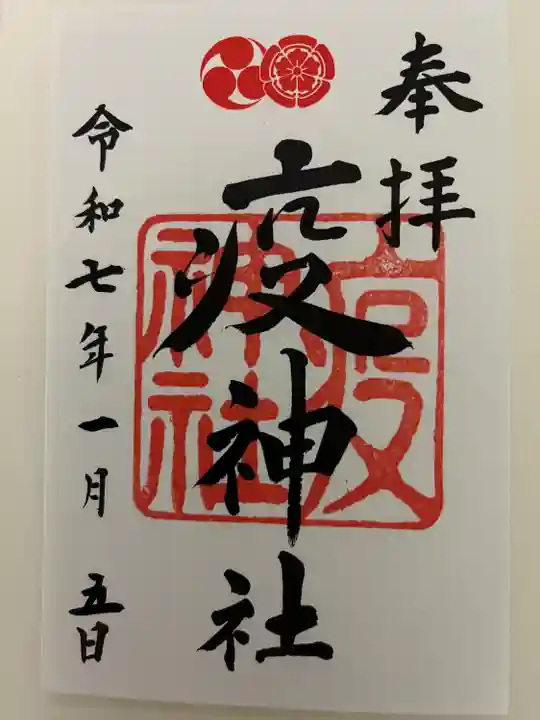 奉拝
疫神社
疫
神社
令和七年一月五日